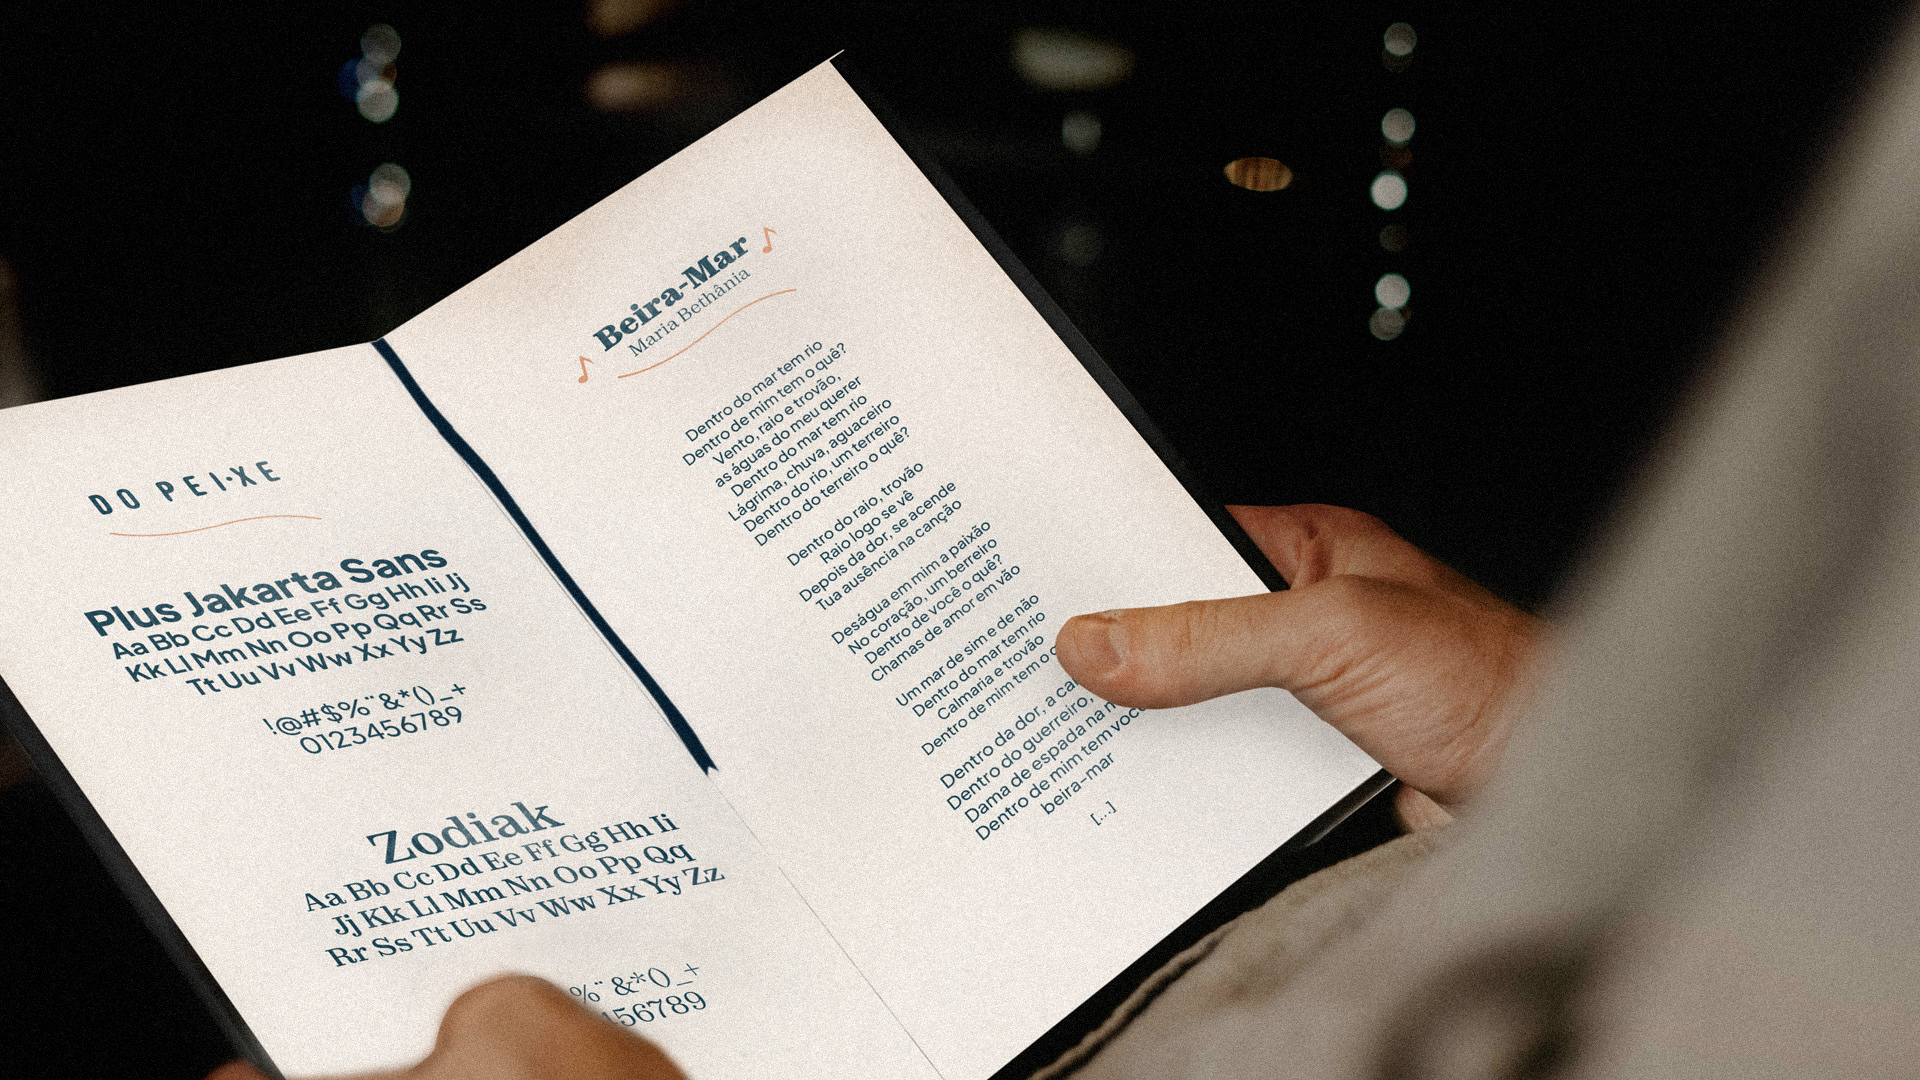 DO PEIXE
Plus Jakarta Sans
Aa Bb Cc Dd Ee Ff Gg Hh Ii Jj
Kk Ll Mm Nn Oo Pp Qq Rr Ss
Tt Uu Vv Ww Xx Yy Zz
!@#$%¨&*()_+
0123456789
Zodiak
Aa Bb Cc Dd Ee Ff Gg Hh Ii
Jj Kk Ll Mm Nn Oo Pp Qq
Rr Ss Tt Uu Vv Ww Xx Yy Zz
%¨&*()_+
56789
Beira-Mar
Maria Bethânia
Dentro do mar tem rio
Dentro de mim tem o quê?
Vento, raio e trovão,
as águas do meu querer
Dentro do mar tem rio
Lágrima, chuva, aguaceiro
Dentro do rio, um terreiro
Dentro do terreiro o quê?
Dentro do raio, trovão
Raio logo se vê
Depois da dor, se acende
Tua ausência na canção
Deságua em mim a paixão
No coração, um berreiro
Dentro de você o quê?
Chamas de amor em vão
Um mar de sim e de não
Dentro do mar tem rio
Calmaria e trovão
Dentro de mim tem o
Dentro da dor, a
Dentro do guerreiro,
Dama de espada na
Dentro de mim tem você
beira-mar
[...]